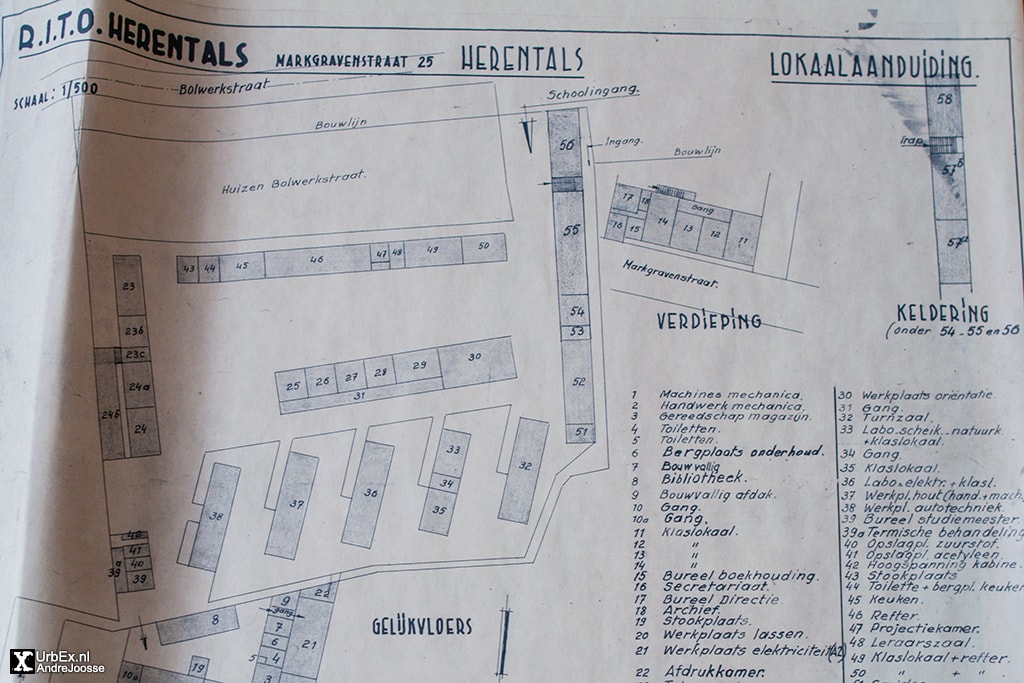 R.I.T.O. HERENTALS MARKGRAVENSTRAAT 25 HERENTALS
LOKAALAANDUIDING.
SCHAAL: 1/500
Bolwerkstraat
Schoolingang.
Bouwlijn
Ingang.
Bouwlijn
Huizen Bolwerkstraat.
56
58
Trap
57b
57a
17
18
16
15
14
Gang
13
12
11
Markgravenstraat.
VERDIEPING
KELDERING
(onder 54-55 en 56
43
44
45
46
47
48
49
50
55
54
53
52
51
23
23b
23c
24a
24b
24
25
26
27
28
29
30
31
38
37
36
33
34
35
32
42
41
40
39
39a
8
9
gang
7
6
5
4
3
22
21
19
10a
GELIJKVLOERS
1 Machines mechanica.
2 Handwerk mechanica.
3 Gereedschap magazijn.
4 Toiletten.
5 Toiletten.
6 Bergplaats onderhoud.
7 Bouwvallig
8 Bibliotheek.
9 Bouwvallig afdak.
10 Gang.
10a Gang.
11 Klaslokaal.
12 "
13 "
14 "
15 Bureel boekhouding.
16 Secretariaat.
17 Bureel Directie.
18 Archief.
19 Stookplaats.
20 Werkplaats lassen.
21 Werkplaats elektriciteit (A2)
22 Afdrukkamer.
30 Werkplaats oriëntatie.
31 Gang.
32 Turnzaal.
33 Labo.scheik.-natuurk
+ klaslokaal.
34 Gang.
35 Klaslokaal.
36 Labo.elektr.+klasl.
37 Werkpl.hout (hand.+mach.
38 Werkpl. autotechniek.
39 Bureel studiemeester.
39a Termische behandeling
40 Opslagpl. zuurstof.
41 Opslagpl. acetyleen.
42 Hoogspanning kabine.
43 Stookplaats
44 Toilette + bergpl. keuken
45 Keuken.
46 Refter.
47 Projectiekamer.
48 Leraarszaal.
49 Klaslokaal + refter.
50 " + "
UrbEx.nl
AndreJoosse